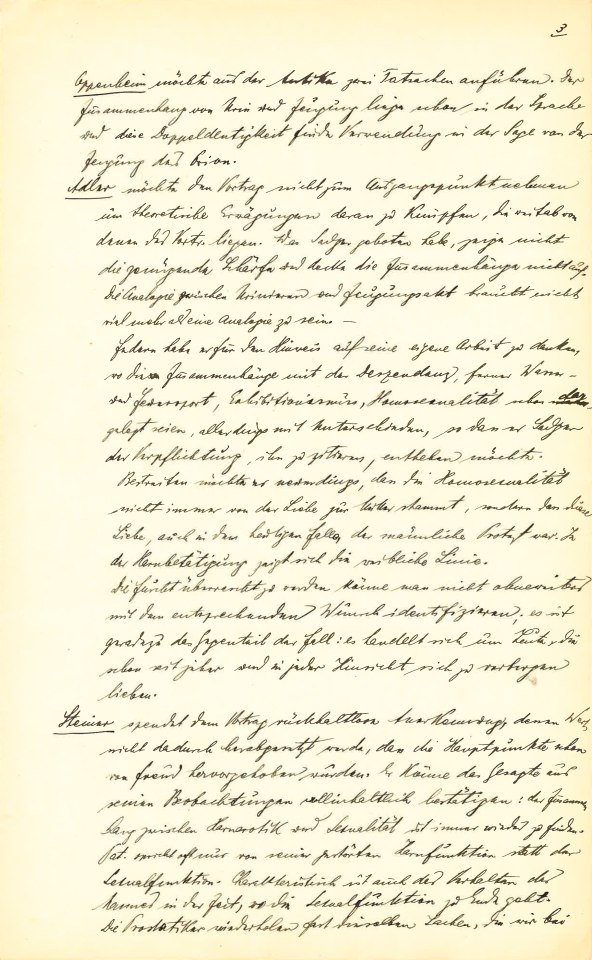 3
Oppenheim möchte aus der Antike zwei Tatsachen anführen. Der
Zusammenhang von Urin und Zeugung liege schon in der Sprache
und diese Doppeldeutigkeit finde Verwendung in der Sage von der
Zeugung des Orion.
Adler möchte den Vortrag nicht zum Ausgangspunkt nehmen
um theoretische Erwägungen daran zu knüpfen, die weitab von
denen des Vortr. liegen. Was Sadger geboten habe, zeige nicht
die genügende Schärfe und decke die Zusammenhänge nicht auf.
Die Analogie zwischen Urinieren und Zeugungsakt braucht nicht
viel mehr als eine Analogie zu sein. —
Federn habe er für den Hinweis auf seine eigene Arbeit zu danken,
wo diese Zusammenhänge mit der Deszendenz, ferner Wasser-
und Feuersport, Exhibitionismus, Homosexualität schon dar-
gelegt seien, allerdings mit Unterschieden, so dass er Sadger
der Verpflichtung, ihn zu zitieren, entheben möchte.
Bestreiten möchte er neuerdings, dass die Homosexualität
nicht immer von der Liebe zur Mutter stammt, sondern dass diese
Liebe, auch in dem heutigen Falle, der männliche Protest war. In
der Harnbetätigung zeigt sich die weibliche Linie.
Die Furcht überrascht zu werden könne man nicht ohneweiters
mit dem entsprechenden Wunsch identifizieren; es ist
geradezu das Gegenteil der Fall: es handelt sich um Leute, die
schon seit jeher und in jeder Hinsicht sich zu verbergen
lieben.
Steiner spendet dem Vortrag rückhaltlose Anerkennung, dessen Wert
nicht dadurch herabgesetzt werde, dass die Hauptpunkte schon
von Freud hervorgehoben wurden. Er könne das Gesagte aus
seinen Beobachtungen vollinhaltlich bestätigen: der Zusammen
hang zwischen Harnerotik und Sexualität ist immer wieder zu finden.
Pat. spricht oft nur von seiner gestörten Harnfunktion statt der
Sexualfunktion. Charakteristisch ist auch das Verhalten des
Mannes in der Zeit, wo die Sexualfunktion zu Ende geht.
Die Prostatiker wiederholen fast dieselben Sachen, die wir bei